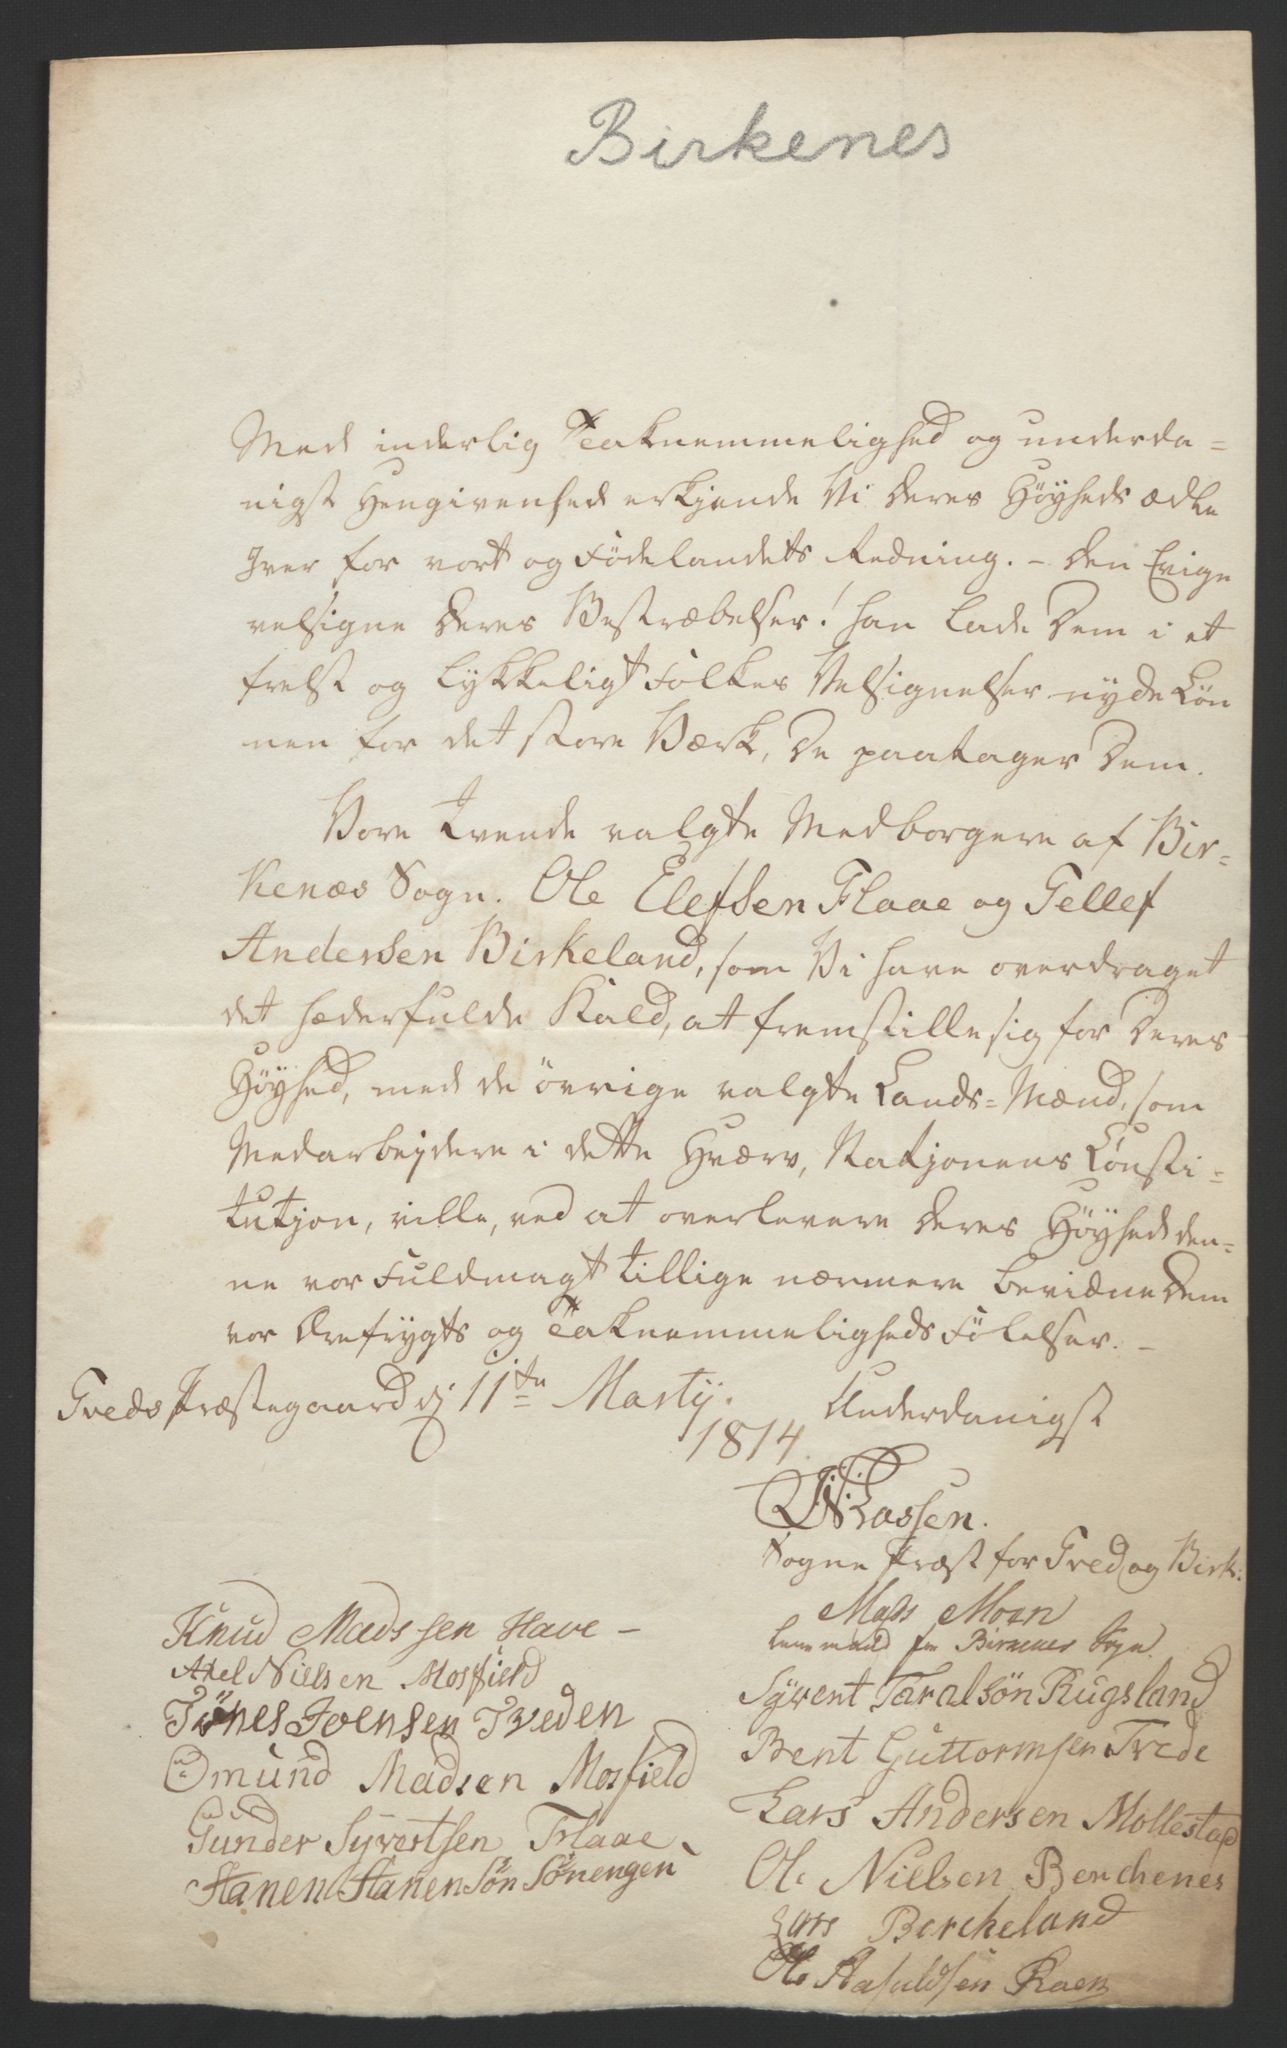 Birkenes
Med inderlig Taknemmelighed og underda=
nigst Hengivenhed erkjende Vi Deres Høyheds ædle
Iver for vort og Födelandets Redning. – Den Evige
velsigne Deres Bestræbelser! Han lade Dem i et
frelst og lykkeligt Folkes Velsignelser nyde Løn
nen for det store Værk, De paatager Dem.
Vore Tvende valgte Medborgere af Bir=
kenæs Sogn. Ole Elefsen Flaae og Tellef
Andersen Birkeland, som Vi have overdraget
det hæderfulde Kald, at fremstille sig for Deres
Høyhed, med de övrige valgte Lands=Mænd, som
Medarbejdere i dette Hværv, Natjonens Consti=
tutjon, ville, ved at overlevere Deres Høyhed den=
ne vor Fuldmagt tillige nærmere bevidne Dem
vor Ærefrygts og Taknemmeligheds Fölelser. –
Tveds Præstegaard d 11te Martij.
1814.
Underdanigst
Lassen.
Sogne Præst for Tved og Birk:
Mads Moen
Lensmand for Birkenes Sogn.
Syvert Taralsön Rugsland
Bent Guttormsen Tvede
Lars Andersen Mollestad
Ole Nielsen Berchenes
Lars Bercheland
Ole Aasuldsen Raen
Knud Madssen Have –
Axel Nielsen Mosfield
Tönes Joensen Tveden
Omund Madsen Mosfield
Gunder Syvertsen Flaae
Hanen Hanensön Sönengen